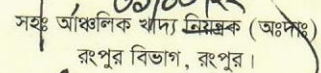 সহঃ আঞ্চলিক খাদ্য নিয়ন্ত্রক (অঃদাঃ)
রংপুর বিভাগ, রংপুর।